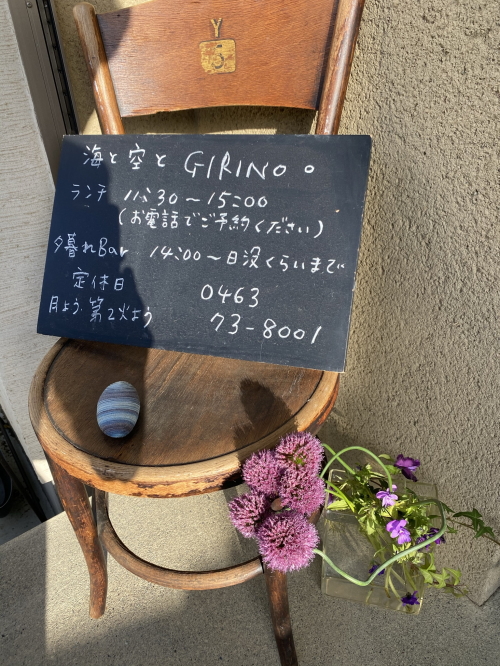 Y
5
海と空と GIRINO。
ランチ 11:30〜15:00
(お電話でご予約ください)
夕暮れBar 14:00〜日没くらいまで
定休日
月よう 第2火よう
0463
73-8001